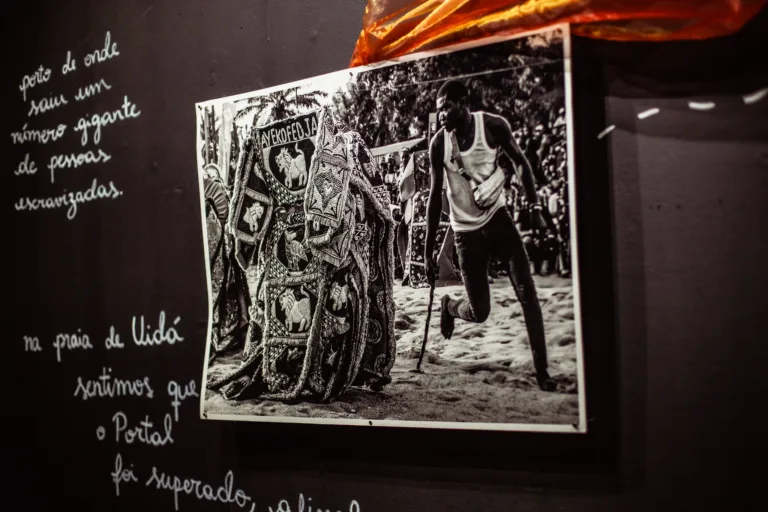 porto de onde
saiu um
número gigante
de pessoas
escravizadas.
AYEKOFEDJA
na praia de Uidá
sentimos que
o Portal
foi superado,